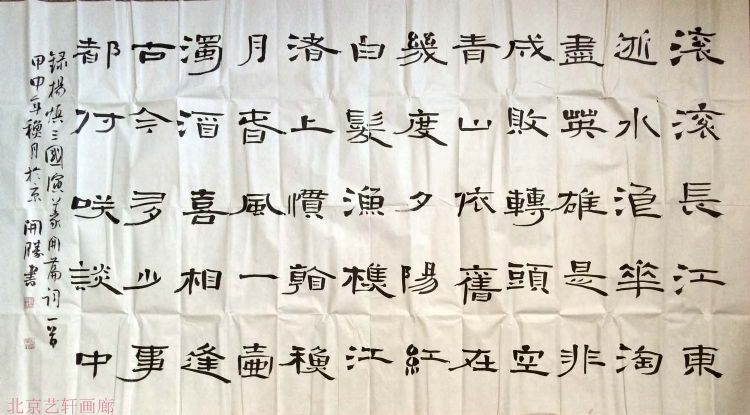 滚滚長江東
逝水浪華淘
盡英雄是非
成敗轉頭空
青山依舊在
幾度夕陽紅
白髮漁樵江
渚上慣看秋
月春風一壺
濁酒喜相逢
古今多少事
都付咲談中
録楊慎三國演義開篇詞一首
甲申年秋月於京 開勝書
北京艺轩画廊